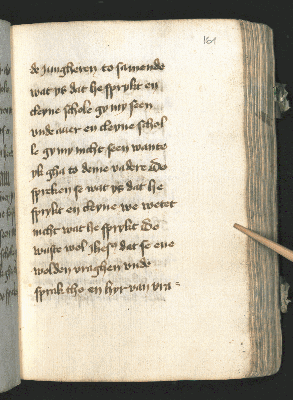 161
de jungheren to samende
wat ys dat he sprykt en
cleyne schole gy my seen
unde auer en cleyne schol
le gy my nicht seen wante
yk gha to deme vadere Do
spreken se wat ys dat he
sprykt en cleyne we wetet
nicht wat he sprykt Do
wuste wol ihesus dat se ene
wolden vraghen unde
sprak tho en hyr van vra=